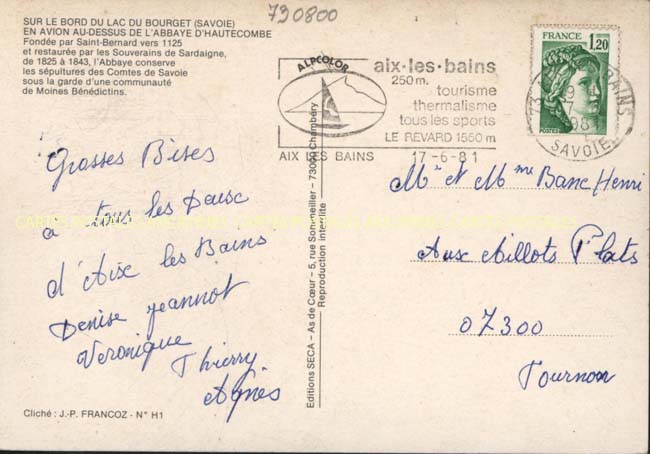 730800
SUR LE BORD DU LAC DU BOURGET (SAVOIE)
EN AVION AU-DESSUS DE L'ABBAYE D'HAUTECOMBE
Fondée par Saint-Bernard vers 1125
et restaurée par les Souverains de Sardaigne,
de 1825 à 1843, l'Abbaye conserve
les sépultures des Comtes de Savoie
sous la garde d'une communauté
de Moines Bénédictins.
Grosses Bises
a tous les Deux
d'Aix les Bains
Denise Jeannot
Veronique
Thierry
Agnès
Cliché : J.-P. FRANCOZ - N° H1
ALPCOLOR
Editions SECA – As de Cœur – 5, rue Sommeiller – 73000 Chambéry
Reproduction interdite
aix-les-bains
250 m.
tourisme
thermalisme
tous les sports
LE REVARD 1550 m
AIX LES BAINS
17-6-81
FRANCE
1,20
POSTES
BAINS
SAVOIE
Mr et Mme Banc Henri
Aux Millots Plats
07300
Tournon